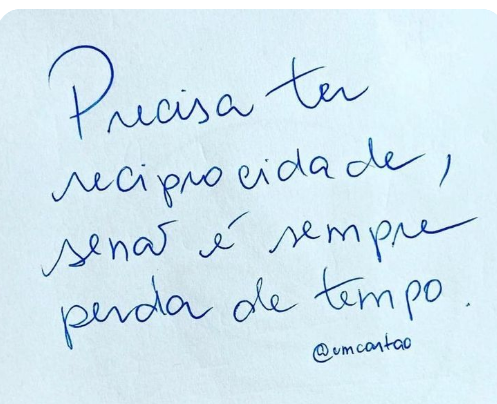 Precisa ter
reciprocidade,
senão é sempre
perda de tempo.
@umcartao